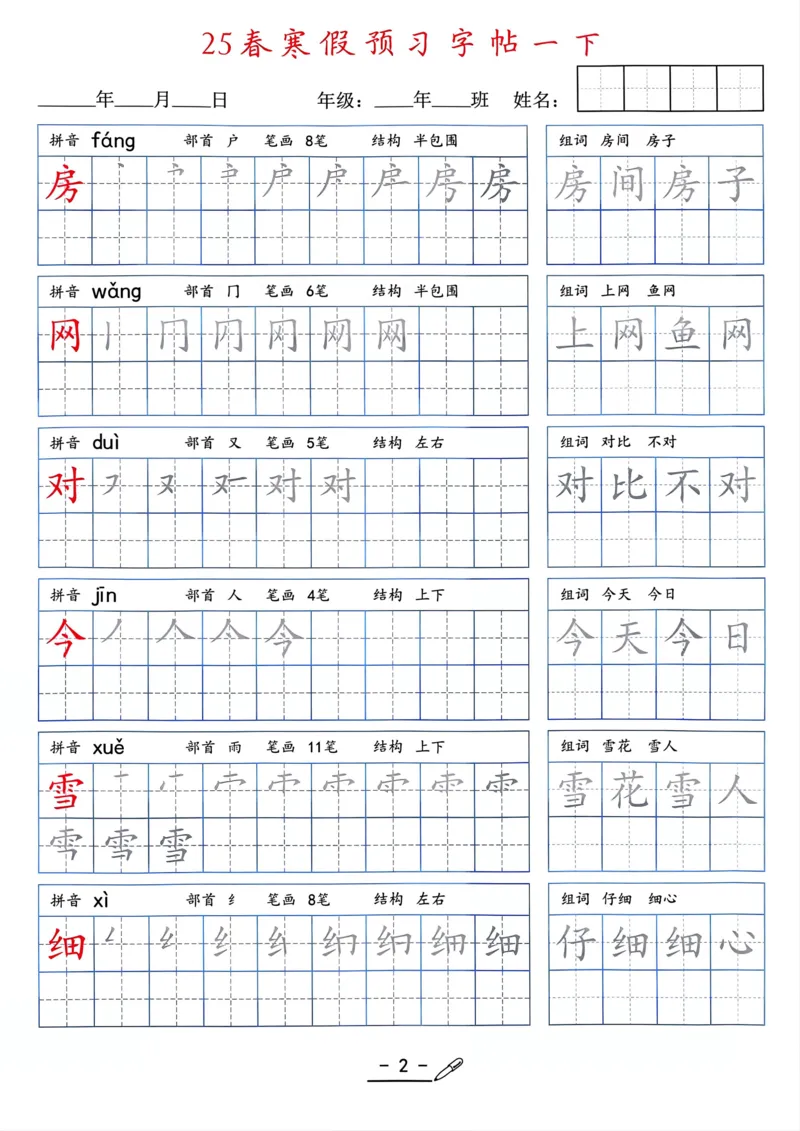 25春寒假预习字帖一下
______年____月____日 年级：____年____班 姓名：
拼音 fáng 部首 户 笔画 8笔 结构 半包围 组词 房间 房子
房 房 房间房子
拼音 wǎng 部首 冂 笔画 6笔 结构 半包围 组词 上网 鱼网
网 网 上网鱼网
拼音 duì 部首 又 笔画 5笔 结构 左右 组词 对比 不对
对 对 对比不对
拼音 jīn 部首 人 笔画 4笔 结构 上下 组词 今天 今日
今 今 今天今日
拼音 xuě 部首 雨 笔画 11笔 结构 上下 组词 雪花 雪人
雪 雪花雪人
雪
拼音 xì 部首 纟 笔画 8笔 结构 左右 组词 仔细 细心
细 细 仔细细心
- 2 -